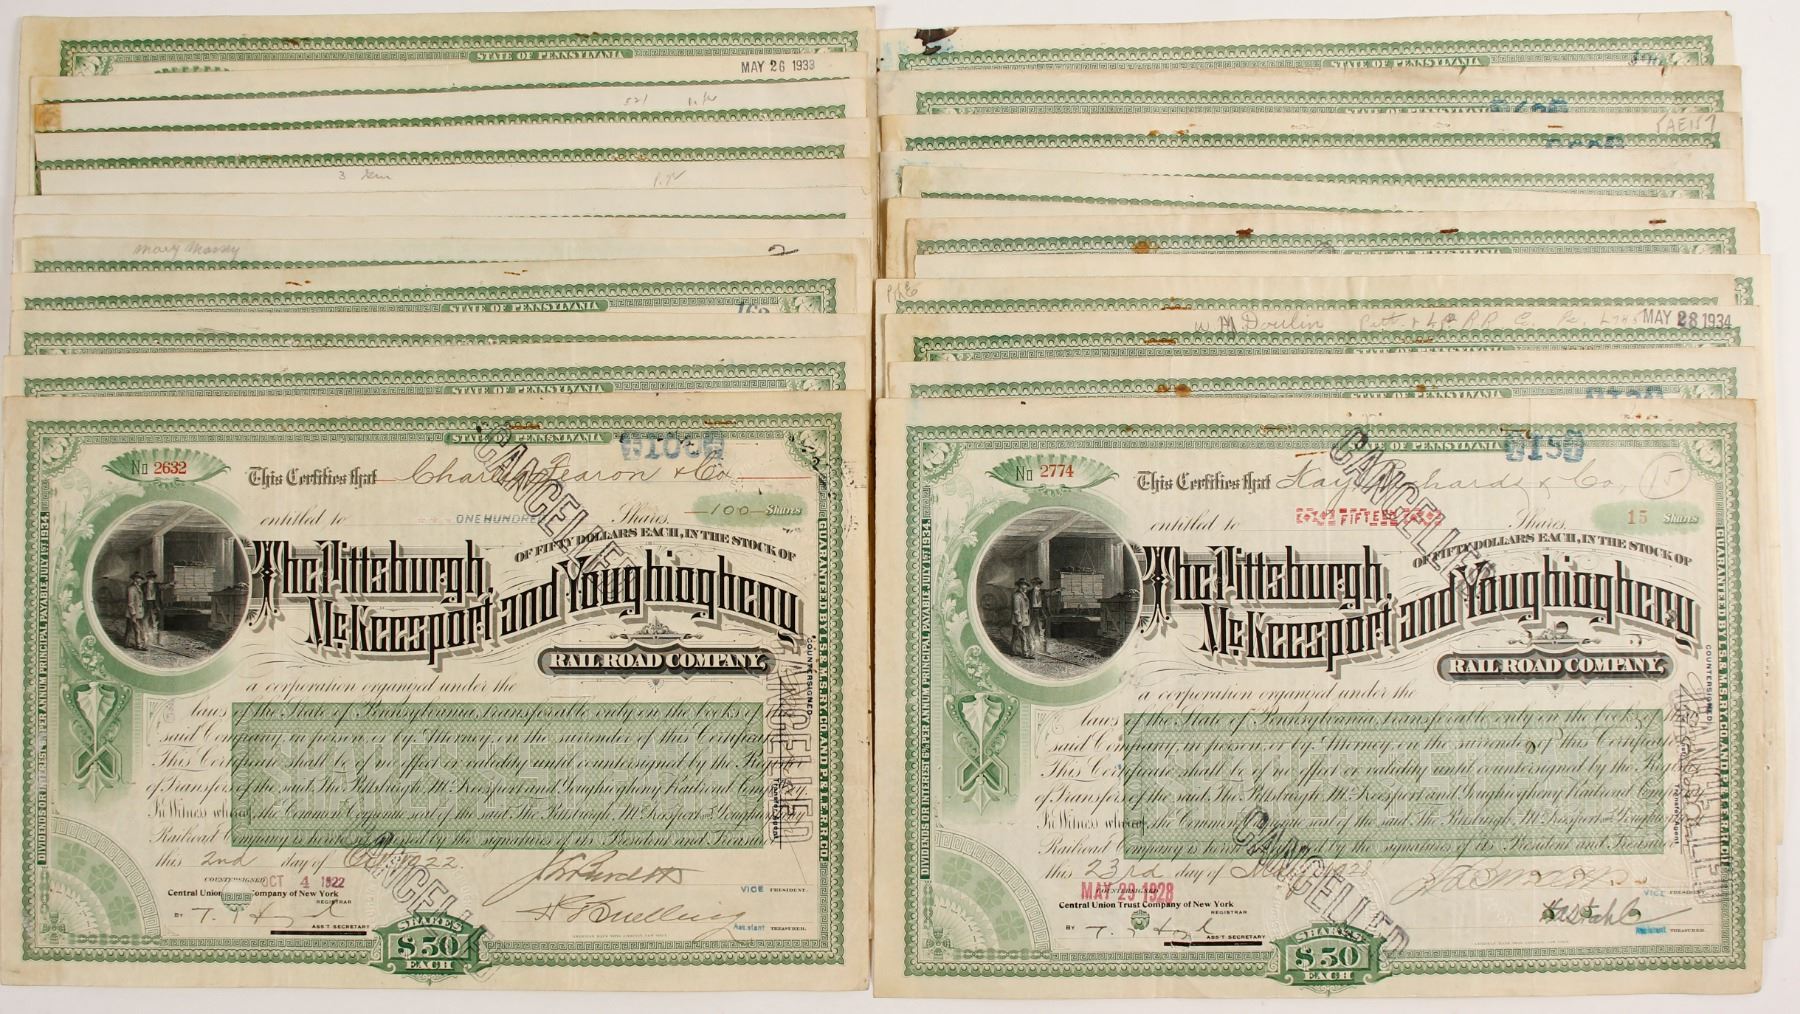 STATE OF PENNSYLVANIA
MAY 26 1933
Mary Massey
STATE OF PENNSYLVANIA
STATE OF PENNSYLVANIA
STATE OF PENNSYLVANIA
No 2632
This Certifies that Charles Fearon & Co
CANCELLED
entitled to ONE HUNDRED Shares -100- Shares
OF FIFTY DOLLARS EACH, IN THE STOCK OF
The Pittsburgh,
McKeesport and Youghiogheny
RAIL ROAD COMPANY,
a corporation organized under the
laws of the State of Pennsylvania transferable only on the books of the
said Company, in person, or by Attorney, on the surrender of this Certificate
This Certificate shall be of no effect or validity until countersigned by the Registrar
of Transfers of the said The Pittsburgh, McKeesport and Youghiogheny Railroad Company
In Witness whereof, the Common Corporate seal of the said The Pittsburgh, McKeesport and Youghiogheny
Railroad Company is hereto affixed by the signatures of its President and Treasurer
this 2nd day of Oct 1922.
COUNTERSIGNED
OCT 4 1922
Central Union Trust Company of New York
REGISTRAR
BY
ASS'T SECRETARY
VICE PRESIDENT.
Assistant TREASURER.
SHARES
$50
EACH
CANCELLED
CANCELLED
COUNTERSIGNED
Transfer Agent
DIVIDENDS OR INTEREST 6% PER ANNUM PRINCIPAL PAYABLE, JULY 1ST 1934.
GUARANTEED BY L.S. & M.S. RY. CO. AND P. & L.E. R.R. CO.
STATE OF PENNSYLVANIA
MAY 28 1934
W M Doulin
STATE OF PENNSYLVANIA
No 2774
This Certifies that Kay Richards & Co, 15
CANCELLED
entitled to FIFTEEN Shares. 15 Shares
OF FIFTY DOLLARS EACH, IN THE STOCK OF
The Pittsburgh,
McKeesport and Youghiogheny
RAIL ROAD COMPANY,
a corporation organized under the
laws of the State of Pennsylvania transferable only on the books of the
said Company, in person, or by Attorney, on the surrender of this Certificate
This Certificate shall be of no effect or validity until countersigned by the Registrar
of Transfers of the said The Pittsburgh, McKeesport and Youghiogheny Railroad Company
In Witness whereof, the Common Corporate seal of the said The Pittsburgh, McKeesport and Youghiogheny
Railroad Company is hereto affixed by the signatures of its President and Treasurer
this 23rd day of May 1928
COUNTERSIGNED
MAY 29 1928
Central Union Trust Company of New York
REGISTRAR
BY
ASS'T SECRETARY
VICE PRESIDENT.
Assistant TREASURER.
SHARES
$50
EACH
CANCELLED
CANCELLED
COUNTERSIGNED
Transfer Agent
DIVIDENDS OR INTEREST 6% PER ANNUM PRINCIPAL PAYABLE, JULY 1ST 1934.
GUARANTEED BY L.S. & M.S. RY. CO. AND P. & L.E. R.R. CO.